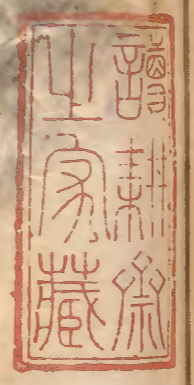 讀耕齋
之家藏